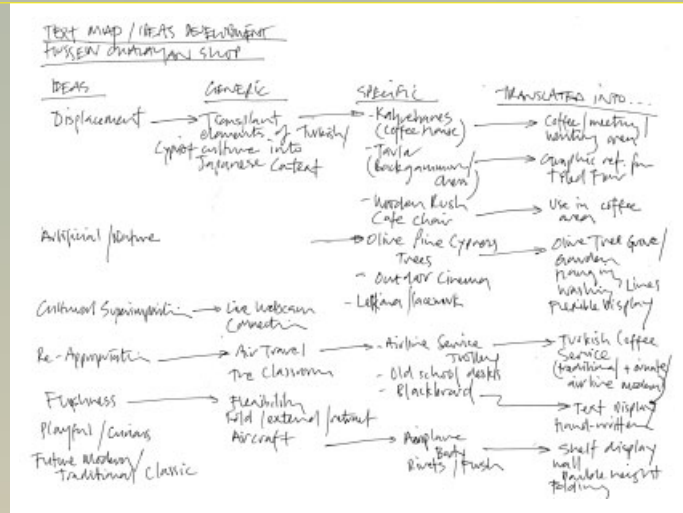 TEXT MAP / IDEAS DEVELOPMENT
HUSSEIN CHALAYAN SHOP
IDEAS
Displacement
Artificial / Nature
Cultural Superimposition
Re-Appropriation
Playful / Curious
Future Modern /
Traditional Classic
GENERIC
Transplant
elements of Turkish /
Cypriot culture into
Japanese Context
Live Webcam
Connection
Air Travel
The Classroom
Flexibility
Fold / extend / retract
Aircraft
SPECIFIC
- Kahvehanes
(Coffee House)
- Tavla
(Backgammon /
- Wooden Rush
Cafe chair
- Olive Pine Cypress
Trees
- Outdoor Cinema
/ lacework
- Airline Service
Trolley
- Old school desks
- Blackboard
- Aeroplane
Body
Rivets / Flush
TRANSLATED INTO...
Coffee / meeting /
waiting area
Graphic ref. for
Tiled Floor
Use in coffee
area
Olive Tree Grove /
Garden
hanging
washing Lines
Flexible Display
Turkish Coffee
Service
(traditional + ornate /
airline modern)
Text Display
hand-written
Shelf display
wall
Double height
folding